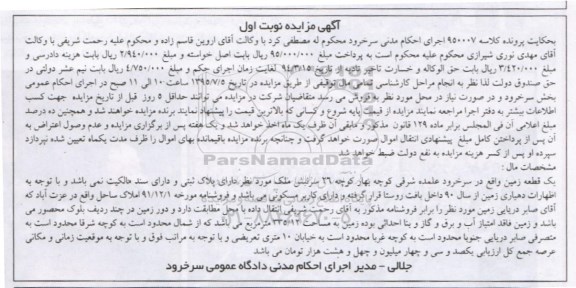 آگهی مزایده نوبت اول
بحکایت پرونده کلاسه ۹۵۰۰۰۷ اجرای احکام مدنی سرخرود محکوم له مصطفی کرد با وکالت آقای اروین قاسم زاده و محکوم علیه رحمت شریفی با وکالت
آقای مهدی نوری شیرازی محکوم علیه محکوم است به پرداخت مبلغ ۹۵/۰۰۰/۰۰۰ ریال بابت اصل خواسته و مبلغ ۲/۹۴۰/۰۰۰ ریال بابت هزینه دادرسی و
مبلغ ۳/۴۲۰/۰۰۰ ریال بابت حق الوکاله و خسارت تاخیر تادیه از تاریخ ۹۴/۳/۱۵ لغایت زمان اجرای حکم و مبلغ ۴/۷۵۰/۰۰۰ ریال بابت نیم عشر دولتی در
حق صندوق دولت لذا نظر به انجام مراحل کارشناسی تمامی مال توقیفی از طریق مزایده در تاریخ ۱۳۹۵/۷/۵ از ساعت ۱۰ الی ۱۱ صبح در اجرای احکام عمومی
بخش سرخرود و در صورت نیاز در محل مورد نظر به فروش می رسد متقاضیان شرکت در مزایده می توانند حداقل ۵ روز قبل از تاریخ مزایده جهت کسب
اطلاعات بیشتر به دفتر اجرا مراجعه نمایند مزایده از قیمت پایه شروع و کسانی که بالاترین قیمت را پیشنهاد نمایند برنده مزایده خواهند شد و همچنین ده درصد
مبلغ اعلامی آن فی المجلس برابر ماده ۱۲۹ قانون مذکور و مابقی آن ظرف یک ماه اخذ خواهد شد و یک هفته پس از برگزاری مزایده و عدم وصول اعتراض به
آن پس از پرداختن کامل مبلغ پیشنهادی انتقال اموال صورت خواهد گرفت و چنانچه برنده مزایده باقیمانده بهای اموال را ظرف مدت یکماه تعیین شده نپردازد
سپرده او پس از کسر هزینه مزایده به نفع دولت ضبط خواهد شد
مشخصات مال :
یک قطعه زمین واقع در سرخرود علمده شرقی کوچه بهار کوچه ۲۶ سرنبش ملک مورد نظر دارای پلاک ثبتی و دارای سند مالکیت نمی باشد و با توجه به
اظهارات دهیاری زمین از سال ۹۰ داخل بافت روستا قرار گرفته و دارای کاربر مسکونی می باشد و فروشنامه مورخه ۹۱/۱۲/۱ املاک ساحل واقع در عزت آباد که
آقای صابر دریایی زمین مورد نظر را برابر فروشنامه مذکور به آقای رحمت شریفی انتقال داده با محل مطابقت دارد و دور زمین در چند ردیف بلوک محصور می
باشد و زمین فاقد امتیاز آب و برق و گاز و بنا احداثی بوده زمین به مساحت ۳۳۵/۱۲ مترمربع می باشد که از شمال محدود است به کوچه شرقا محدود است به
متصرفی صابر دریایی جنوبا محدود است به کوچه غربا محدود است به خیابان ۱۰ متری تعریضی و با توجه به مراتب فوق و با توجه به موقعیت زمانی و مکانی
عرصه جمع کل ارزیابی یکصد و سی و چهار میلیون و چهل و هشت هزار تومان می باشد
جلالی - مدیر اجرای احکام مدنی دادگاه عمومی سرخرود
ParsNamadData